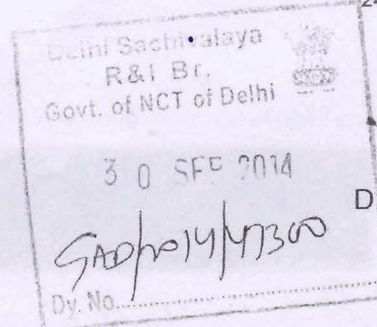 Delhi Sachivalaya
R&I Br.
Govt. of NCT of Delhi
30 SEP 2014
GAD/2014/47300
Dy. No.
D